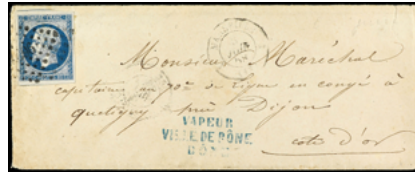 Monsieur Maréchal
capitaine au 70e de ligne en congé à
quetigny près Dijon
VAPEUR
VILLE DE BÔNE
BÔNE
cote d'or